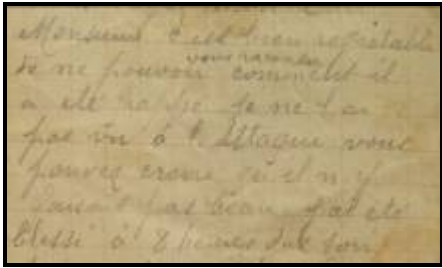 Monsieur c'est bien regrettable
de ne pouvoir vous raconter comment il
a été je ne l'ai
pas vu à l'Attaque vous
pouvez croire qu'il n'y
faisait pas beau j'ai été
blessé à 8 heures du